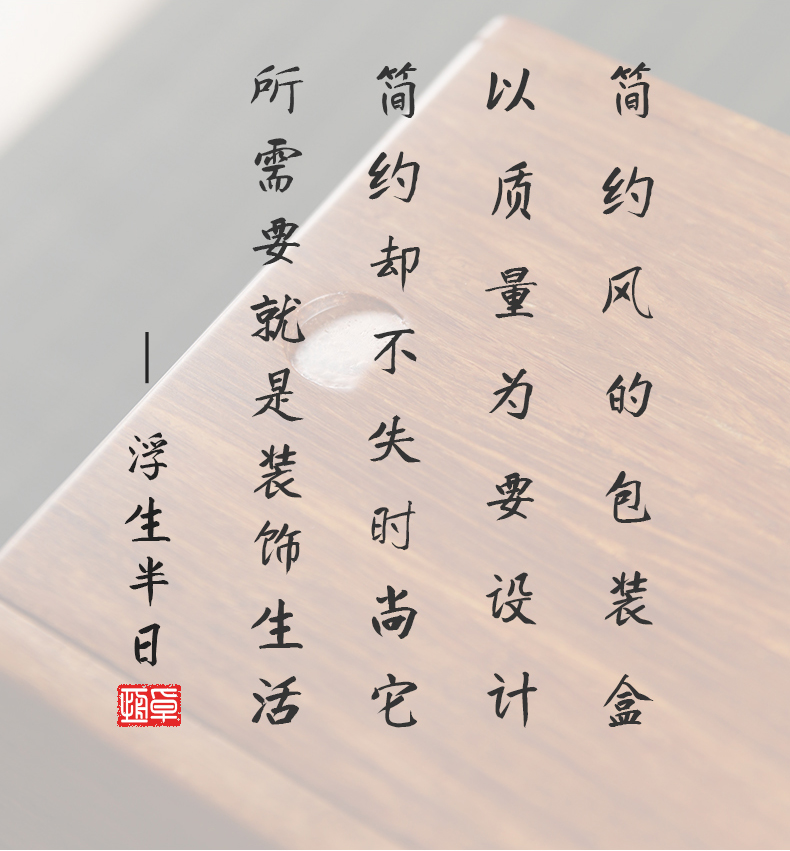 简约风的包装盒
以质量为要设计
简约却不失时尚它
所需要就是装饰生活
—浮生半日